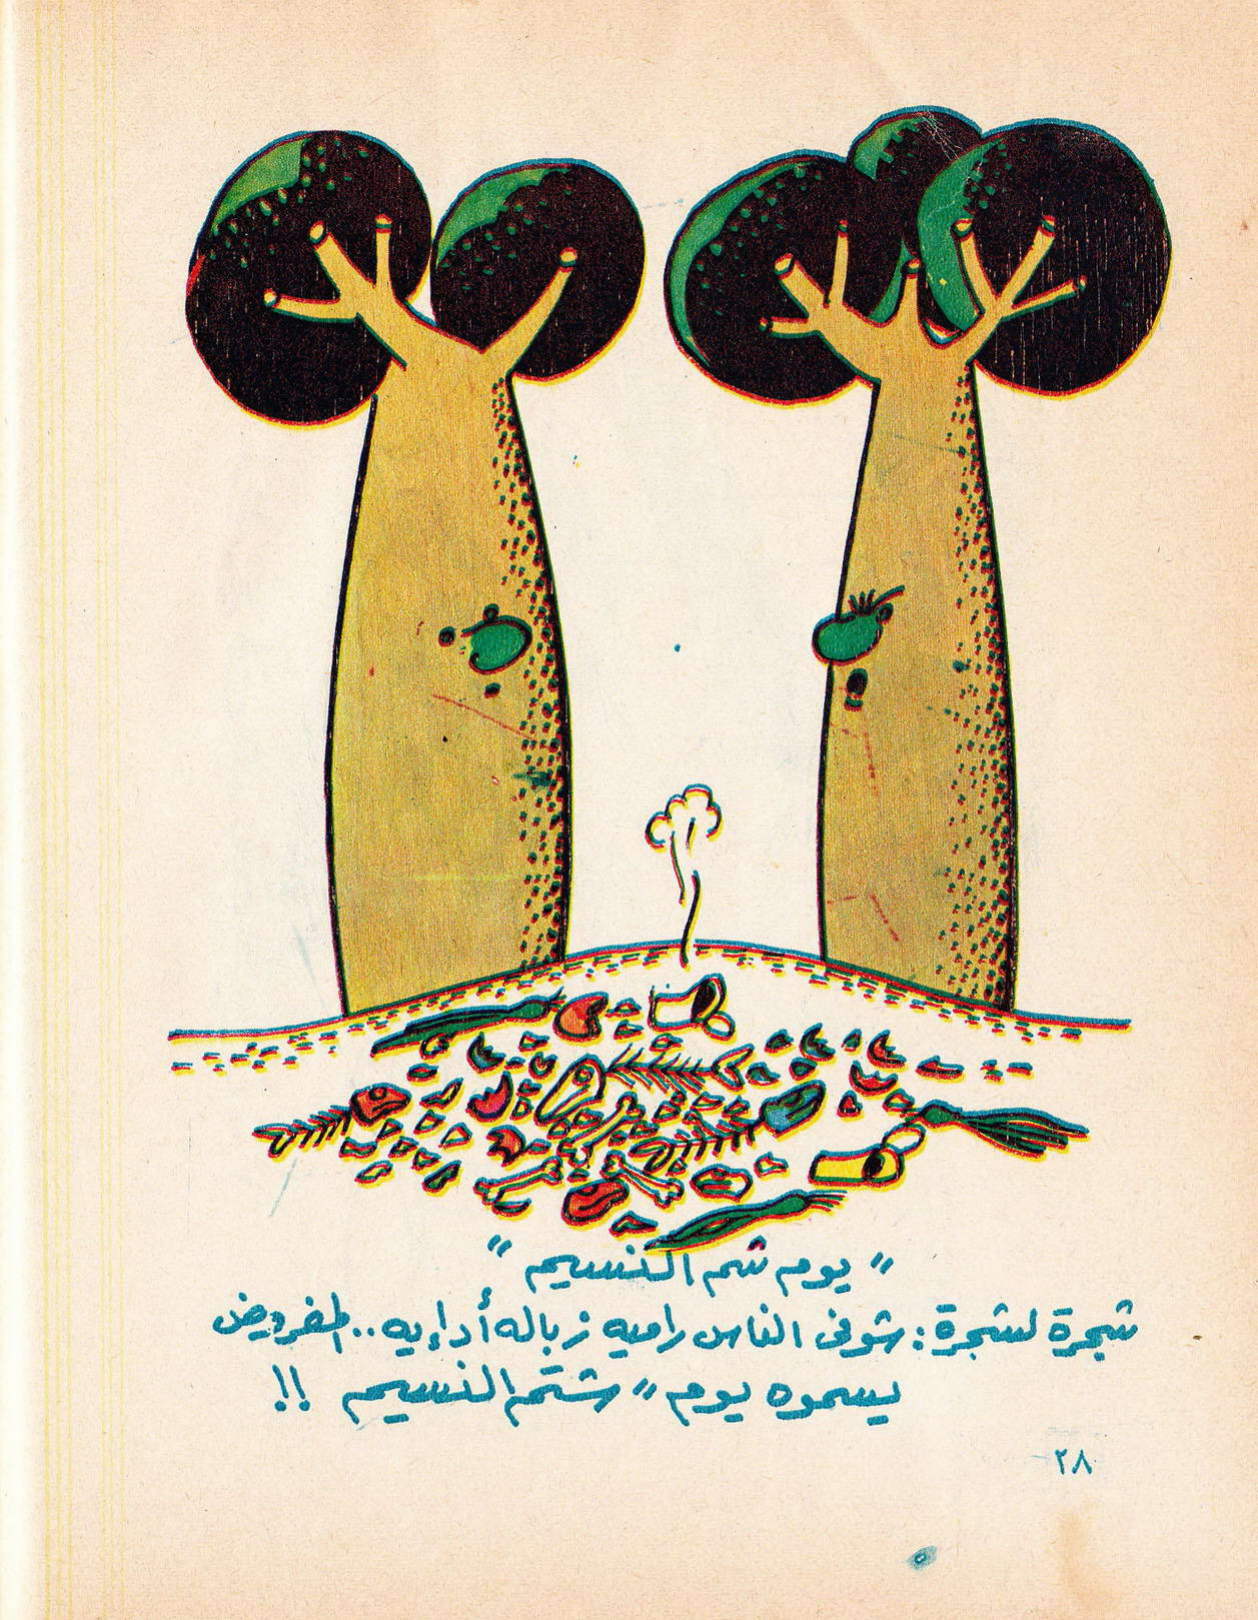 " يوم شم النسيم "
شجرة لشجرة : شوفى الناس راميه زباله أد إيه .. المفروض
يسموه يوم " شتم النسيم !!
٢٨